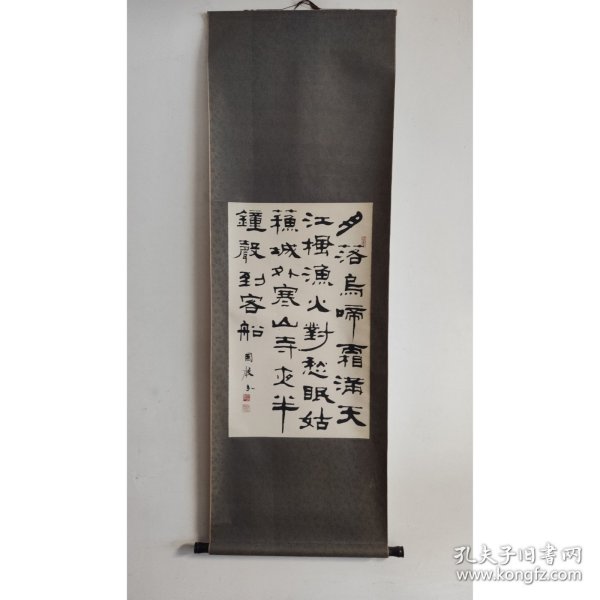 月落烏啼霜滿天
江楓漁火對愁眠姑
蘇城外寒山寺夜半
鍾聲到客船
孔夫子旧书网
www.kongfz.com